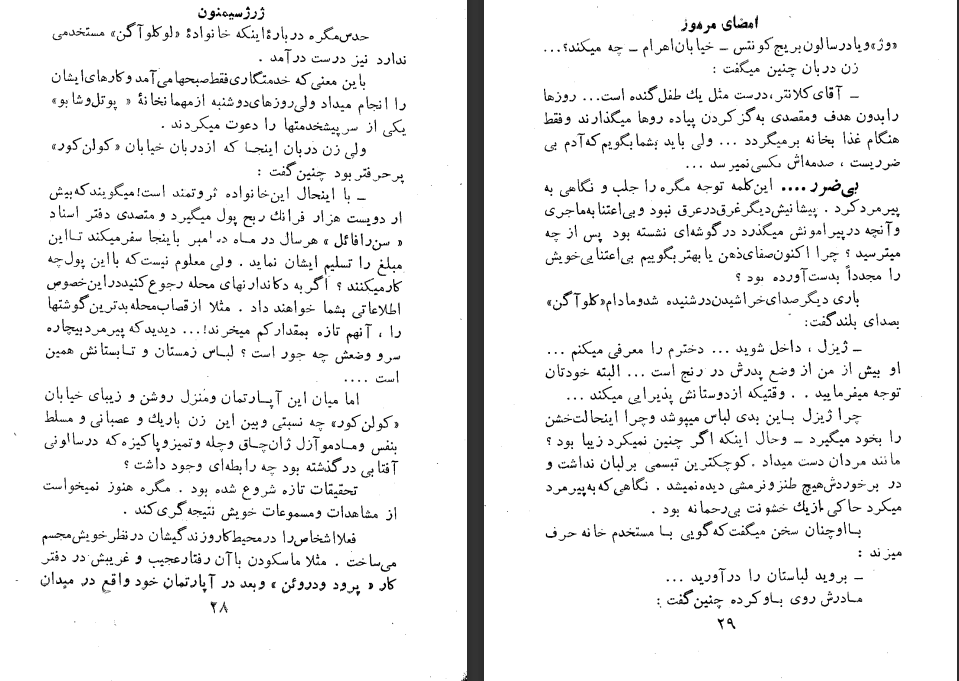 ژرژسیمنون
حدس مگره دربارهٔ اینکه خانوادهٔ «لوکلوآگن» مستخدمی
ندارد نیز درست درآمد .
باین معنی که خدمتگاری فقط صبحها می‌آمد و کارهای ایشان
را انجام میداد ولی روزهای دوشنبه از مهمانخانهٔ « پوتل وشابو»
یکی از سرپیشخدمتها را دعوت میکردند .
ولی زن دربان اینجا که از دربان خیابان «کولن کور»
پرحرفتر بود چنین گفت :
ــ با اینحال این خانواده ثروتمند است! میگویند که بیش
از دویست هزار فرانك ربح پول میگیرد و متصدی دفتر اسناد
« سن رافائل » هرسال در ماه دسامبر باینجا سفر میکند تا این
مبلغ را تسلیم ایشان نماید . ولی معلوم نیست که با این پول چه
کار میکنند ؟ اگر به دکاندارنهای محله رجوع کنید در این خصوص
اطلاعاتی بشما خواهند داد . مثلا از قصاب محله بدترین گوشتها
را ، آنهم تازه بمقدار کم میخرند!... دیدید که پیرمرد بیچاره
سرو وضعش چه جور است ؟ لباس زمستان و تابستانش همین
است ....
اما میان این آپارتمان و منزل روشن و زیبای خیابان
«کولن کور» چه نسبتی وبین این زن باریك و عصبانی و مسلط
بنفس ومادموآزل ژان چاق وچله وتمیز و پاکیزه که در سالونی
آفتابی درگذشته بود چه رابطه‌ای وجود داشت ؟
تحقیقات تازه شروع شده بود . مگره هنوز نمیخواست
از مشاهدات ومسموعات خویش نتیجه گری کند .
فعلا اشخاص را در محیط کار و زندگیشان در نظر خویش مجسم
می‌ساخت . مثلا ماسکودن با آن رفتار عجیب و غریبش در دفتر
کار « پرود ودروئن » وبعد در آپارتمان خود واقع در میدان
۲۸
امضای مرموز
«وژ» و یا در سالون بریج کونتس ــ خیابان اهرام ــ چه میکند؟...
زن دربان چنین میگفت :
ــ آقای کلانتر، درست مثل یك طفل گنده است... روزها
را بدون هدف ومقصدی به گز کردن پیاده روها میگذارند و فقط
هنگام غذا بخانه برمیگردد ... ولی باید بشما بگویم که آدم بی
ضرریست ، صدمه‌اش بکسی نمیرسد ...
بی‌ضرر.... این کلمه توجه مگره را جلب و نگاهی به
پیرمرد کرد . پیشانیش دیگر غرق در عرق نبود و بی‌اعتنا به ماجری
وآنچه در پیرامونش میگذرد در گوشه‌ای نشسته بود پس از چه
میترسید ؟ چرا اکنون صفای ذهن یا بهتر بگوییم بی‌اعتنایی خویش
را مجدداً بدست آورده بود ؟
باری دیگر صدای خراشیدن در شنیده شد و مادام «کلوآگن»
بصدای بلند گفت:
ــ ژیزل ، داخل شوید ... دخترم را معرفی میکنم ...
او بیش از من از وضع پدرش در رنج است ... البته خودتان
توجه میفرمایید . . وقتیکه از دوستانش پذیرایی میکند ...
چرا ژیزل باین بدی لباس میپوشد وچرا اینحالت خشن
را بخود میگیرد ــ وحال اینکه اگر چنین نمیکرد زیبا بود ؟
مانند مردان دست میداد . کوچکترین تبسمی بر لبان نداشت و
در برخوردش هیچ طنز ونرمشی دیده نمیشد . نگاهی که به پیرمرد
میکرد حاکی از یك خشونت بی‌رحمانه بود .
با او چنان سخن میگفت که گویی با مستخدم خانه حرف
میزند :
ــ بروید لباستان را درآورید ...
مادرش روی باو کرده چنین گفت :
۲۹